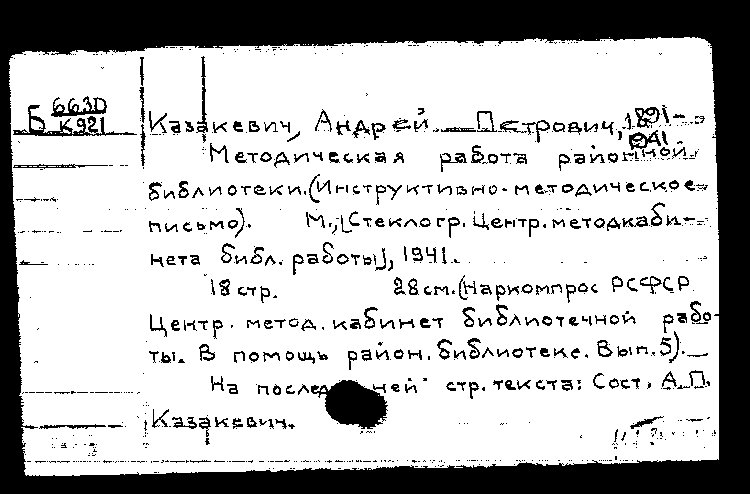 Б 663D
К921
Казакевич, Андрей Петрович, 1891-
1941
Методическая работа районной
библиотеки. (Инструктивно-методическое
письмо). М., [Стеклогр. Центр. методкаби-
нета библ. работы], 1941.
18 стр. 28 см. (Наркомпрос РСФСР
Центр. метод. кабинет библиотечной рабо-
ты. В помощь район. библиотеке. Вып. 5).
На последней стр. текста: Сост. А.П.
Казакевич.